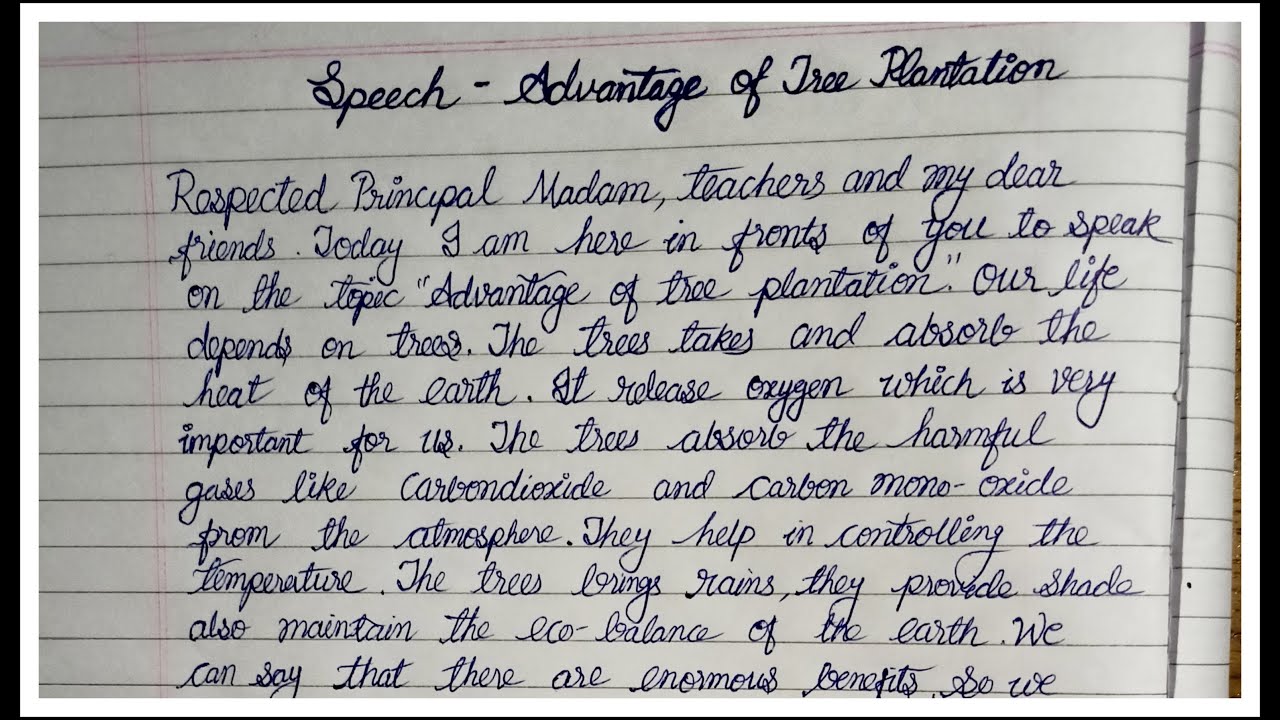 Speech - Advantage of Tree Plantation
Respected Principal Madam, teachers and my dear
friends. Today I am here in fronts of you to speak
on the topic "Advantage of tree plantation." Our life
depends on trees. The trees takes and absorb the
heat of the earth. It release oxygen which is very
important for us. The trees absorb the harmful
gases like Carbondioxide and carbon mono-oxide
from the atmosphere. They help in controlling the
temperature. The trees brings rains, they provide shade
also maintain the eco-balance of the earth. We
can say that there are enormous benefits. So we